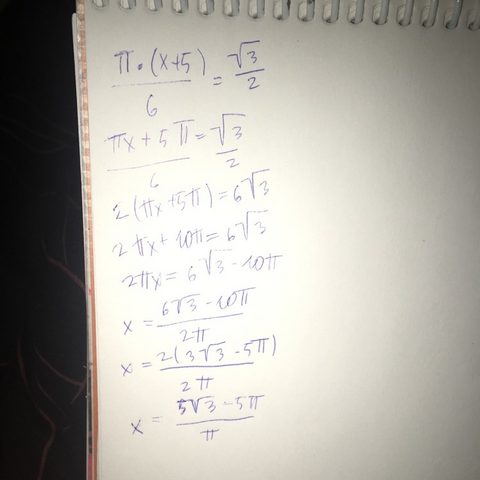 π·(x+5)/6 = √3/2
πx+5π/6 = √3/2
2(πx+5π)=6√3
2πx+10π=6√3
2πx=6√3-10π
x = 6√3-10π/2π
x = 2(3√3-5π)/2π
x = 5√3-5π/π